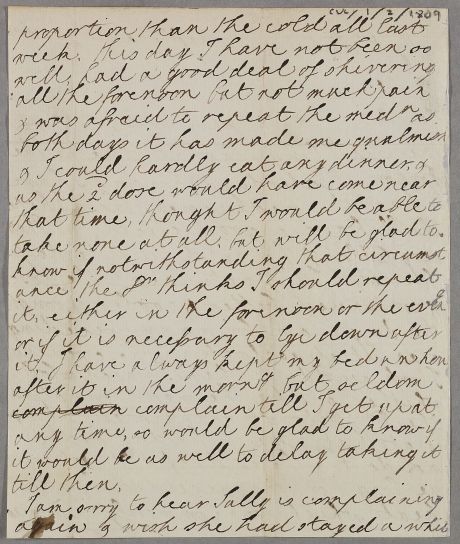 cul/1/2/1809
proportion than the cold all last
week. This day I have not been so
well, had a good deal of shivering
all the forenoon but not much pain
& was afraid to repeat the medn as
both days it has made me qualmish
& I could hardly eat any dinner, &
as the 2d dose would have come near
that time, thought I would be able to
take none at all. but will be glad to
know if notwithstanding that circumst
ance the Dr thinks I should repeat
it, either in the forenoon or the eveng
or if it is necessary to lye down after
it. I have always kept my bed an hour
after it in the morng but seldom
complain complain till I get up at
any time, so would be glad to know if
it would be as well to delay taking it
till then.
I am sorry to hear Sally is complaining
again & wish she had stayed a while